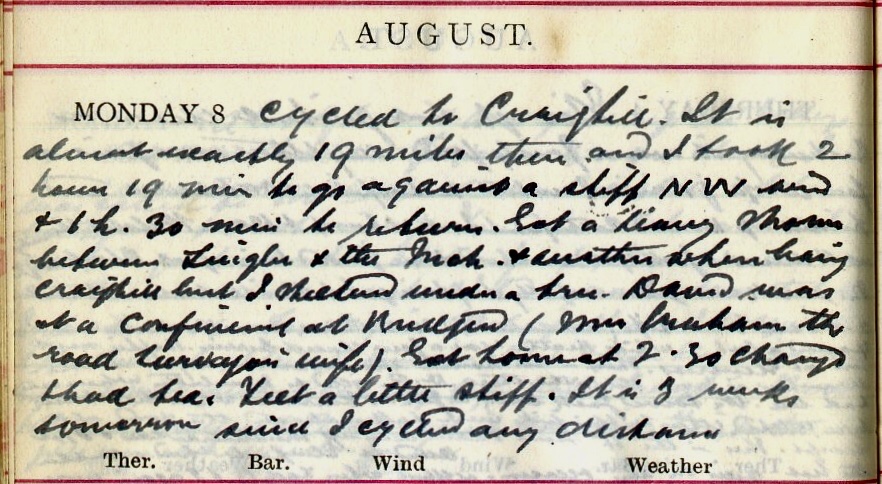 AUGUST.
MONDAY 8 Cycled to Craighill. It is
almost exactly 19 miles there and I took 2
hours 19 min to go against a stiff NW wind
& 1 h. 30 min to return. Got a heavy shower
between & the Inch. & another when leaving
Craighill but I sheltered under a tree. David was
at a confinement at Bridgend (Mrs Graham the
road surveyors wife). Got home at 7.30 changed
& had tea. Feel a little stiff. It is 3 weeks
tomorrow since I cycled any distance
Ther. Bar. Wind Weather